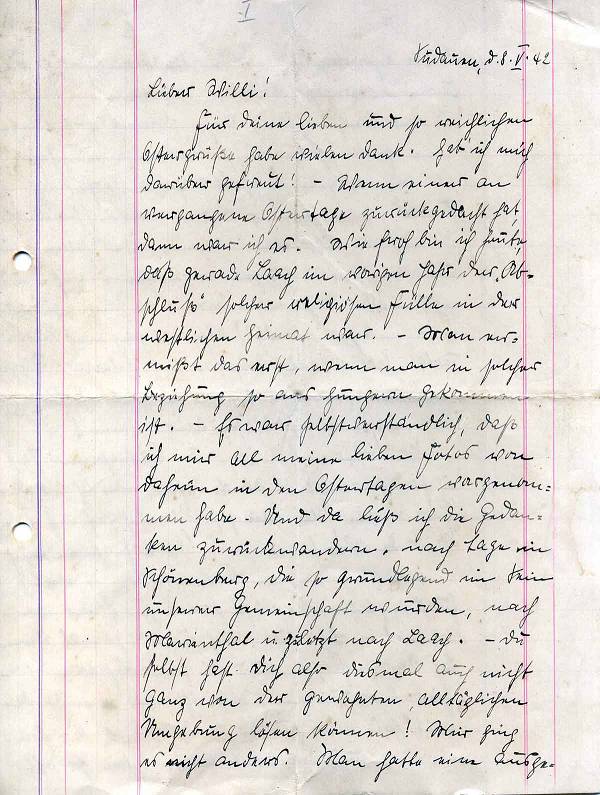 I
Sudauen, d. 8. IV. 42
Lieber Willi!
Für deine lieben und so reichlichen
Ostergrüße habe vielen Dank. Hab' ich mich
darüber gefreut! – Wenn einer an
vergangene Ostertage zurückgedacht hat,
dann war ich es. Wie froh bin ich heute
daß gerade Laach im vorigen Jahr der „Ab-
schluß" solcher religiösen Fülle in der
westlichen Heimat war. – Man ver-
mißt das erst, wenn man in solcher
Beziehung so ans Hungern gekommen
ist. – Es war selbstverständlich, daß
ich mir all meine lieben Fotos von
daheim in den Ostertagen vorgenom-
men habe. Und da ließ ich die Gedan-
ken zurückwandern, nach Tage in
Schönenburg, die so grundlegend im Sein
unserer Gemeinschaft wurden, nach
Marienthal u. zuletzt nach Laach. – Du
selbst hast Dich also diesmal auch nicht
ganz von der gewohnten, alltäglichen
Umgebung lösen können! Mir ging
es nicht anders. Man hatte eine Ausge-